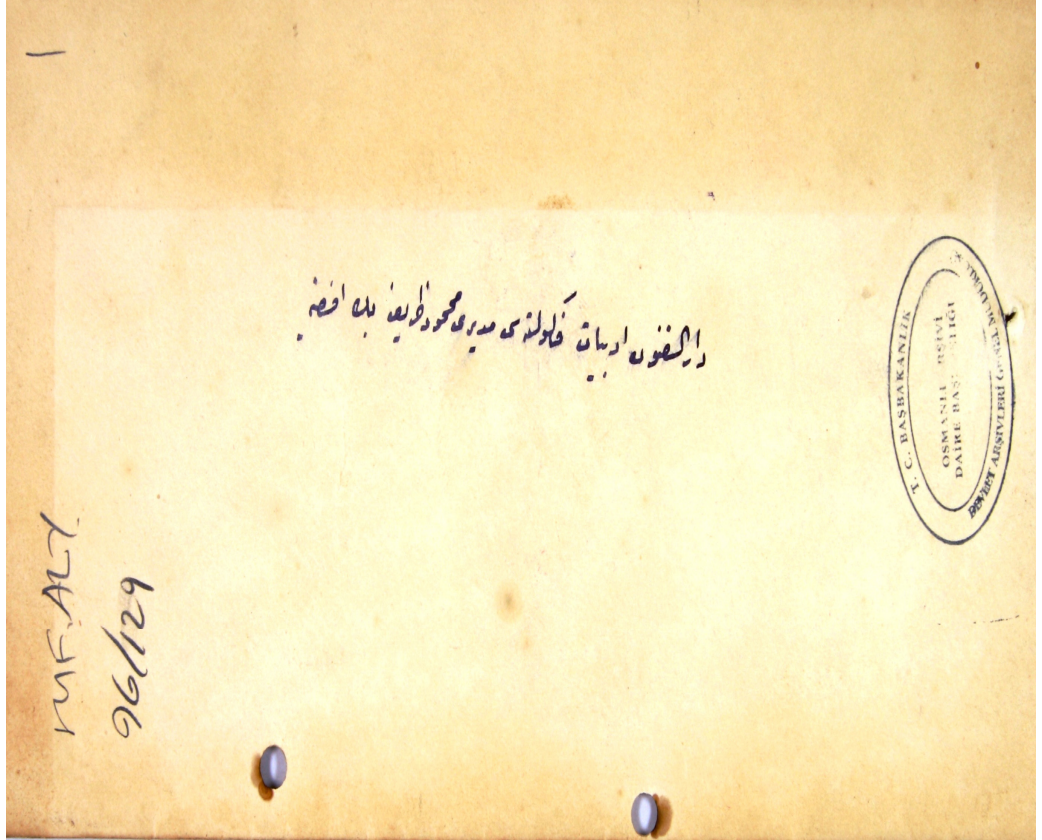 دارالفنون ادبيات فاكولته سى مديرى محمود ظريف بك افندى
MF.ALY
96/129
T. C. BAŞBAKANLIK
OSMANLI ARŞİVİ
DAİRE BAŞKANLIĞI
DEVLET ARŞİVLERİ GENEL MÜDÜRLÜĞÜ